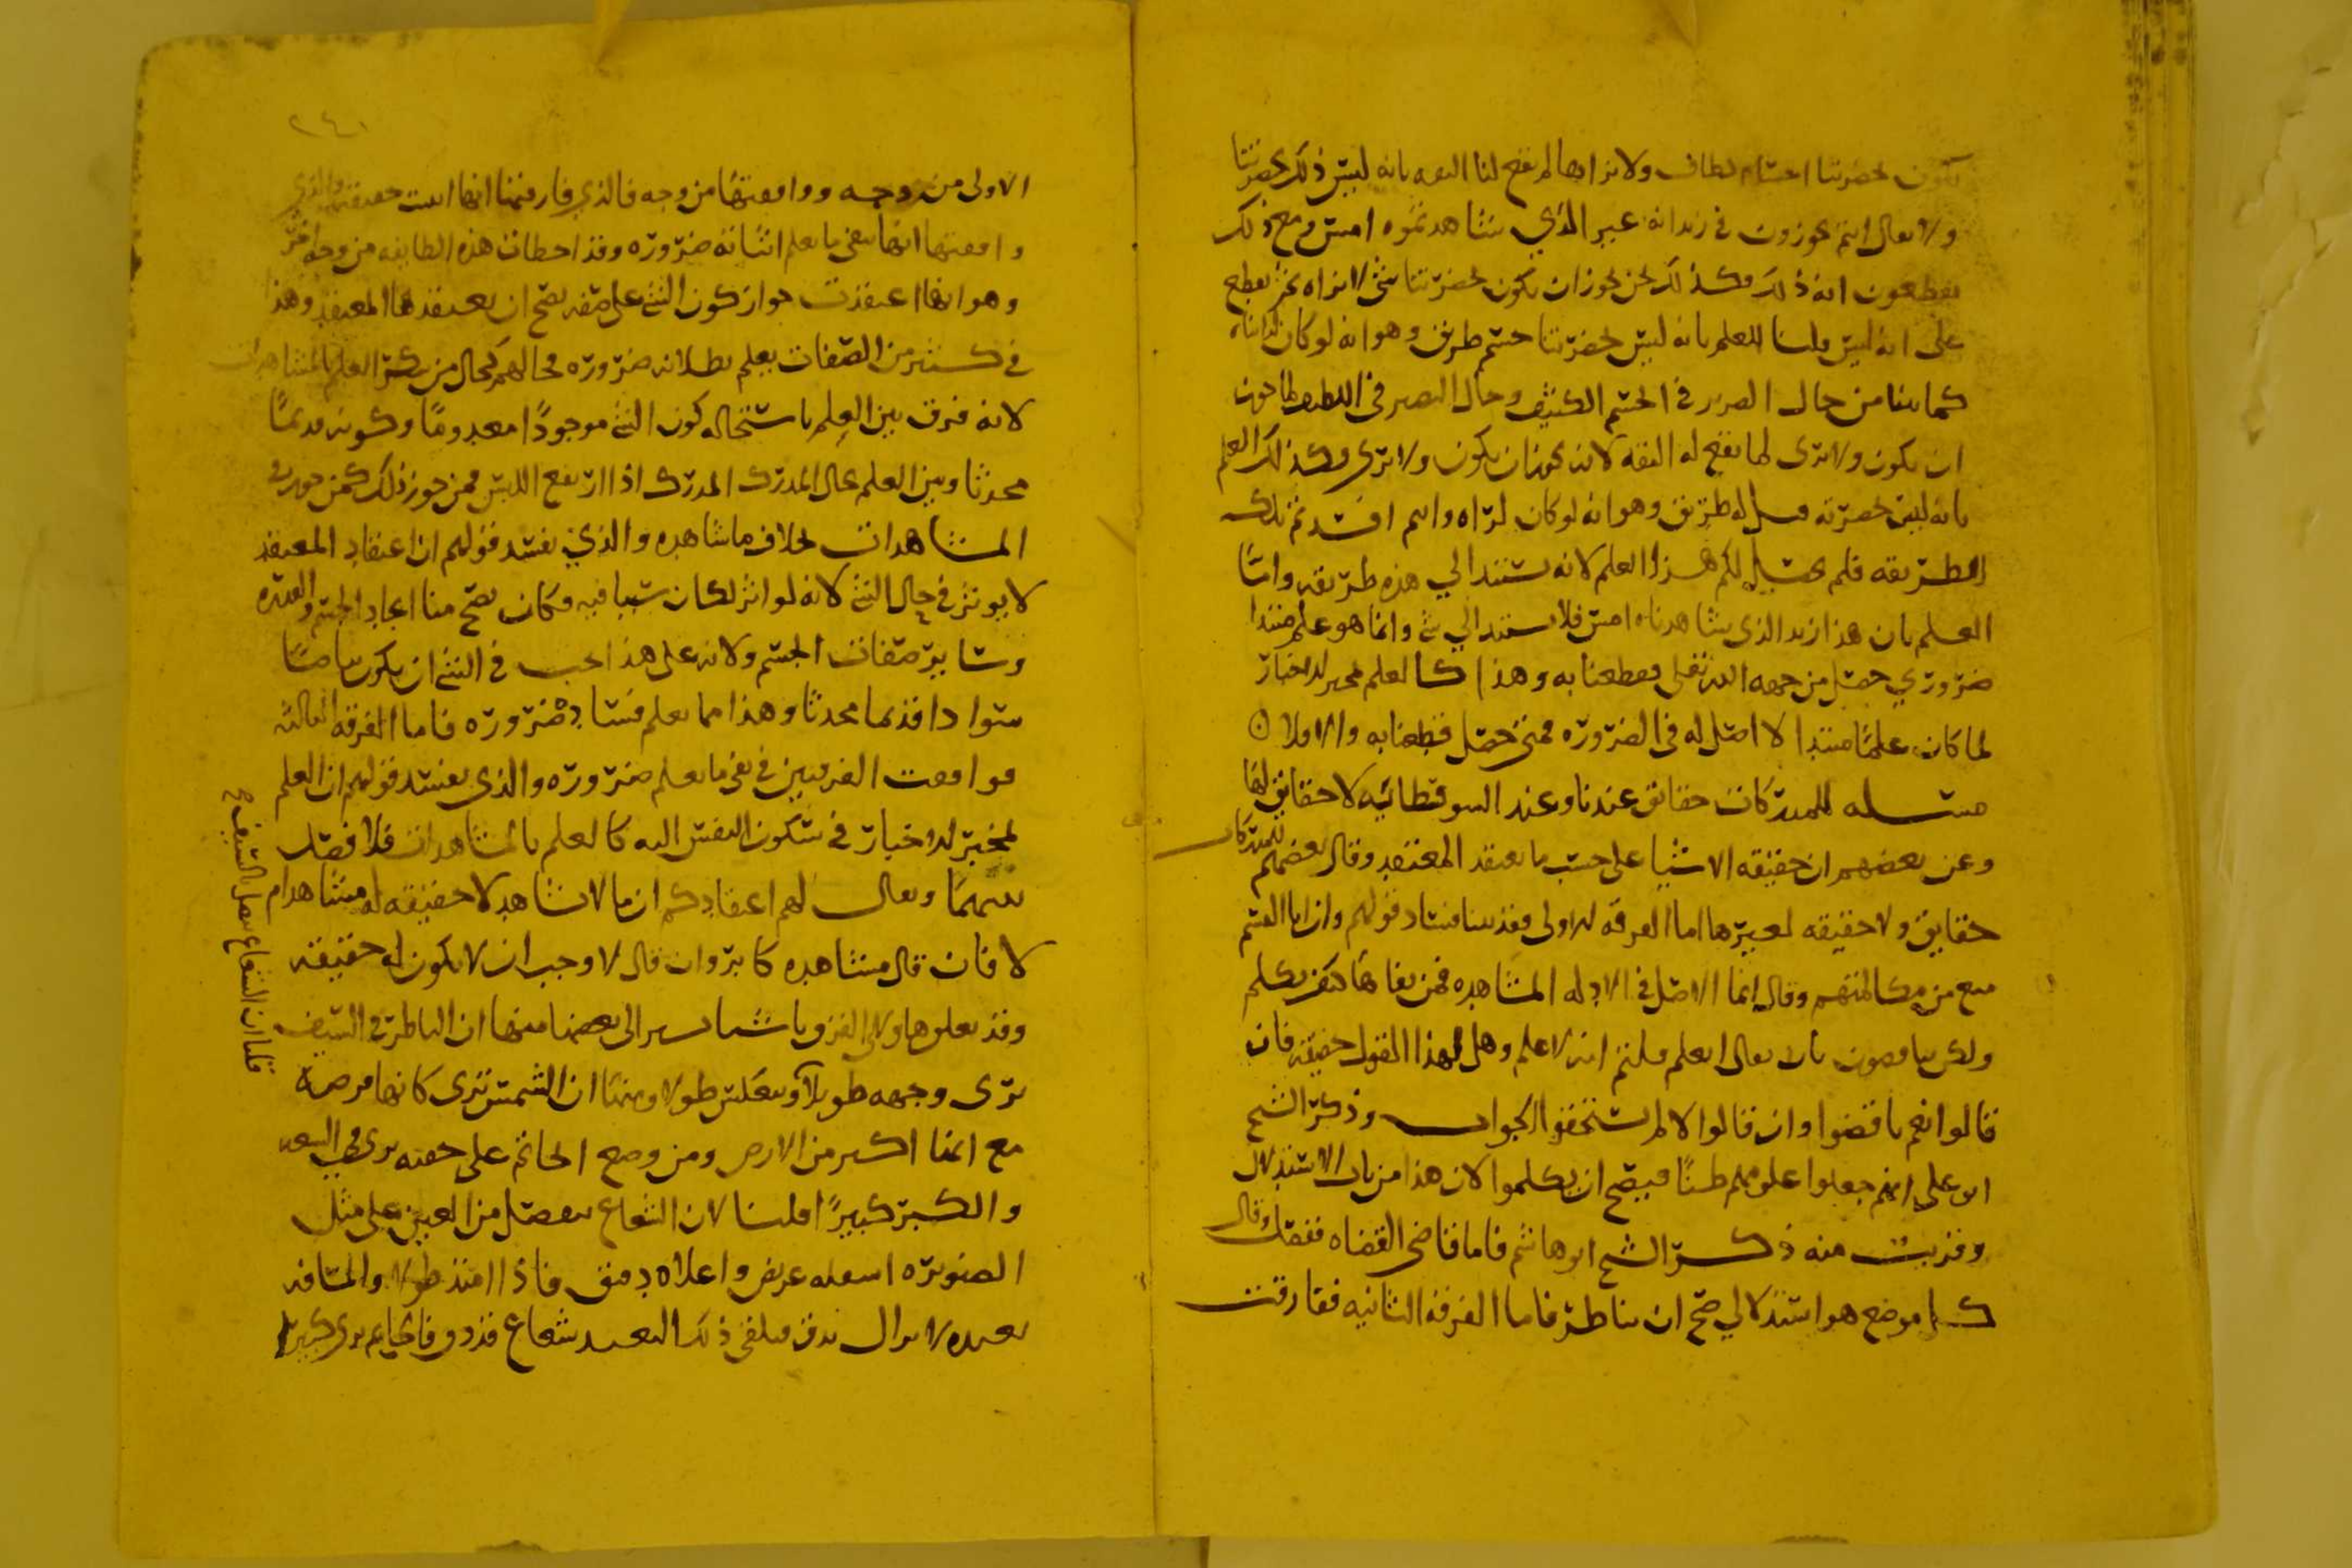 تكون بحضرتنا اجسام لطاف ولا نراها لم تقع لنا الثقه بانه ليس ذلك بحضرتنا
ولا يقال انتم تجوزون في زيد انه غير الذي شاهدتموه امس ومع ذلك
تقطعون انه ذلك وكذلك نحن نجوز ان يكون بحضرتنا شي لا نراه ثم نقطع
على انه ليس قلنا للعلم بانه ليس بحضرتنا جسم طريق وهو انه لو كان لراناه
كما بينا من حال الضرير في الجسم الكثيف وحال البصير في اللطيف لما جوز
ان يكون ولا يرى لما تقع له الثقه لانه يجوز ان يكون ولا يرى وكذلك العلم
بانه ليس بحضرته فيل له طريق وهو انه لو كان لراه وانتم افسدتم تلك
الطريقه فلم يحصل لكم هذا العلم لانه يستند الى هذه طريقه واما
العلم بان هذا زيد الذي شاهدناه امس فلا يستند الي شي وانما هو علم مبتدا
ضروري حصل من جهه الله تعلى فقطعنا به وهذا كالعلم بمخبر الاخبار
لما كان علمًا مبتدا لا اصل له في الضروره فمتى حصل قطعنا به والا فلا
مسله للمدركات حقائق عندنا وعند السوفسطائيه لا حقايق لها
وعن بعضهم ان حقيقه الاشيا على حسب ما يعتقد المعتقد وقال بعضهم للمدركات
حقايق ولا حقيقه لغيرها اما الفرقه الاولى فقد بينا فساد قولهم وان ابا القسم
منع من مكالمتهم وقال انما الاصل في الادله المشاهده فمن نفاها كيف يكلم
ولكن يناقضون بان يقال العلم قلتم انه لا علم وهل لهذا القول حقيقه فان
قالوا نعم ناقضوا وان قالوا لا لم يستحقوا الجواب وذكر الشيخ
ابو علي انهم جعلوا علومهم ظنًا فيصح ان يكلموا لان هذا من باب الاستدلال
وقريب منه ذكر الشيخ ابو هاشم فاما قاضي القضاه ففصل وقال
كل موضع هو استدلالي صح ان يناظر فاما الفرقه الثانيه ففارقت
٢٤٠
الاولى من وجه ووافقتها من وجه فالذي فارقتها انها اثبتت حقيقة والذي
وافقتها انها تنفي ما يعلم اثباته ضروره وقد اخطات هذه الطايفه من وجه اخر
وهو انها اعتقدت جواز كون الشي على صفه يصح ان يعتقدها المعتقد وهذا
في كثير من الصفات يعلم بطلانه ضروره فحالهم كحال من ينكر العلم بالمشاهدات
لانه فرق بين العلم باستحاله كون الشي موجودًا معدومًا وكونه قديمًا
محدثا وبين العلم بحال المدرك المدرك اذا ارتفع اللبس فمن جوز ذلك كمن جوز في
المشاهدات بخلاف ما شاهده والذي يفسد قولهم ان اعتقاد المعتقد
لا يوثر في حال الشي لانه لو اثر لكان سببا فيه فكان يصح منا ايجاد الجسم والقدره
وسائر صفات الجسم ولانه على هذا يجب في الشي ان يكون بياضًا
سوادا قديما محدثا وهذا مما يعلم فساده ضروره فاما الفرقه الثالثه
فوافقت الفرقتين في نفي ما يعلم ضروره والذي يفسد قولهم ان العلم
بمخبر الاخبار في سكون النفس اليه كالعلم بالمشاهدات فلا فصل
بينهما ويقال لهم اعتقادكم ان ما لا نشاهد لا حقيقه له مشاهد ام
لا فان قال مشاهده كابر وان قال لا وجب ان لا يكون له حقيقه
وقد تعلق هاولاء الفرق باشيا يشير الى بعضها منها ان الناظر في السيف
يرى وجهه طويلاً وبعكس طولا ومنها ان الشمس ترى كانها قرصه
مع انها اكبر من الارض ومن وضع الخاتم على جفنه يرى في البعد
والكبر كبيرًا قلنا لان الشعاع ينفصل من العين على مثل
الصنوبره اسفله عريض واعلاه دقيق فاذا امتد طولا والمسافه
بعيده لا يزال يدق فيلقى ذلك البعيد شعاع قد دق فالخاتم يرى كبيرا
قلنا ان الشعاع يتصل بالسيف